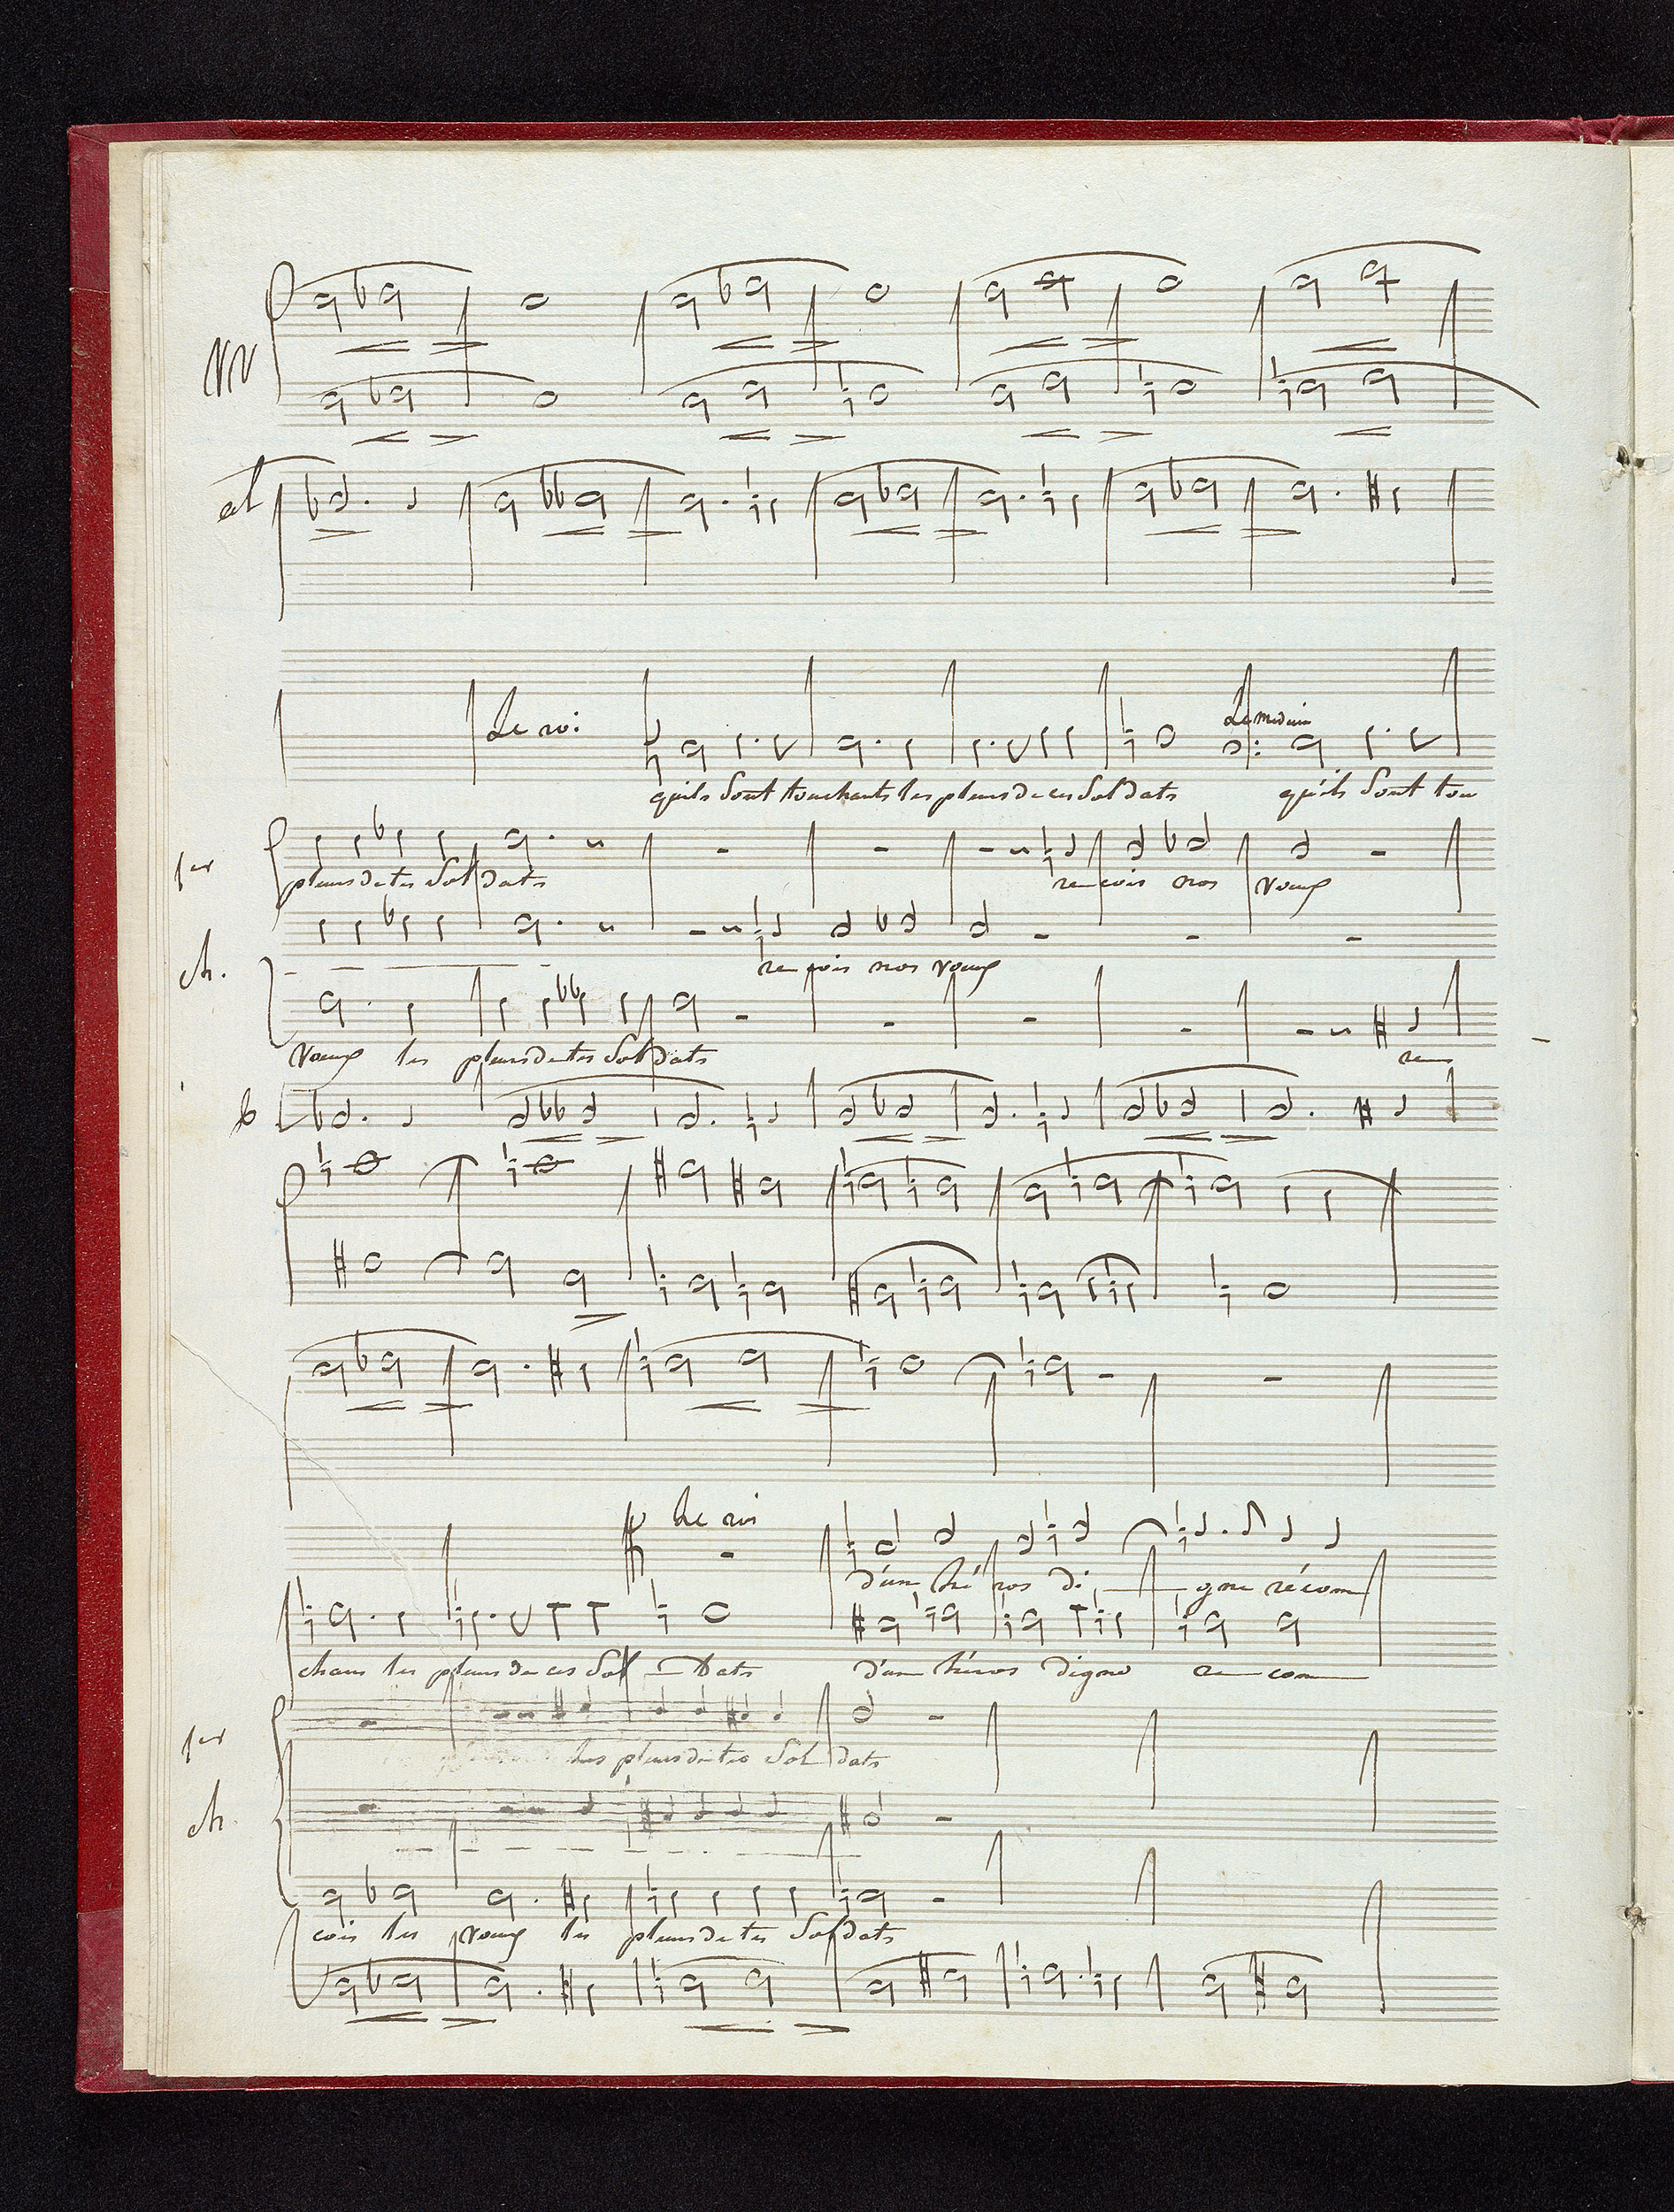 VV
al
Le roi
Le Medecin
qu'ils sont touchants les pleurs de ces Soldats qu'ils sont tou
1er
pleurs de tes Sol dats recois nos voeux
ch.
recois nos voeux
voeux les pleurs de tes Sol dats re
b
Le roi
d'un hé ros di gne récom
chans les pleurs de ces Sol Dats d'un héros digne re com
1er
les pleurs de tes Sol dats
ch.
cois les voeux les pleurs de tes Sol dats